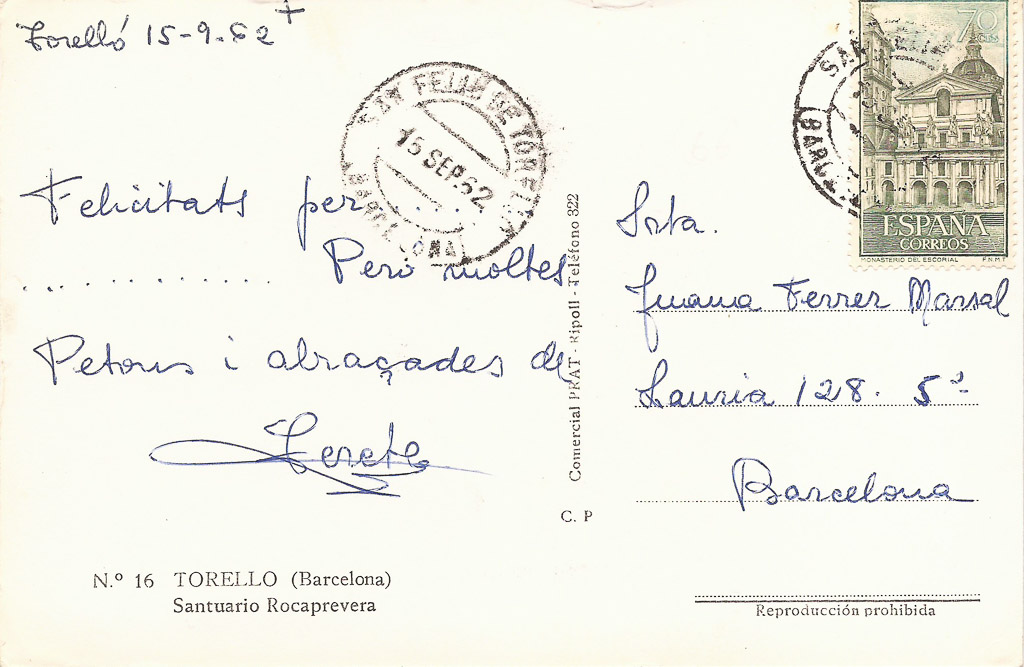 Torelló 15-9-62
Felicitats per . . . .
. . . . . . . . . . . . Pero moltes
Petons i abraçades de
Terete
N.º 16 TORELLO (Barcelona)
Santuario Rocaprevera
SAN FELIU DE TORELLO
15 SEP. 62
BARCELONA
Comercial PRAT - Ripoll - Teléfono 322
C. P
70 CTS
ESPAÑA
CORREOS
MONASTERIO DEL ESCORIAL F.N.M.T.
Srta.
Juana Ferrer Marsal
Lauria 128. 5º
Barcelona
Reproducción prohibida